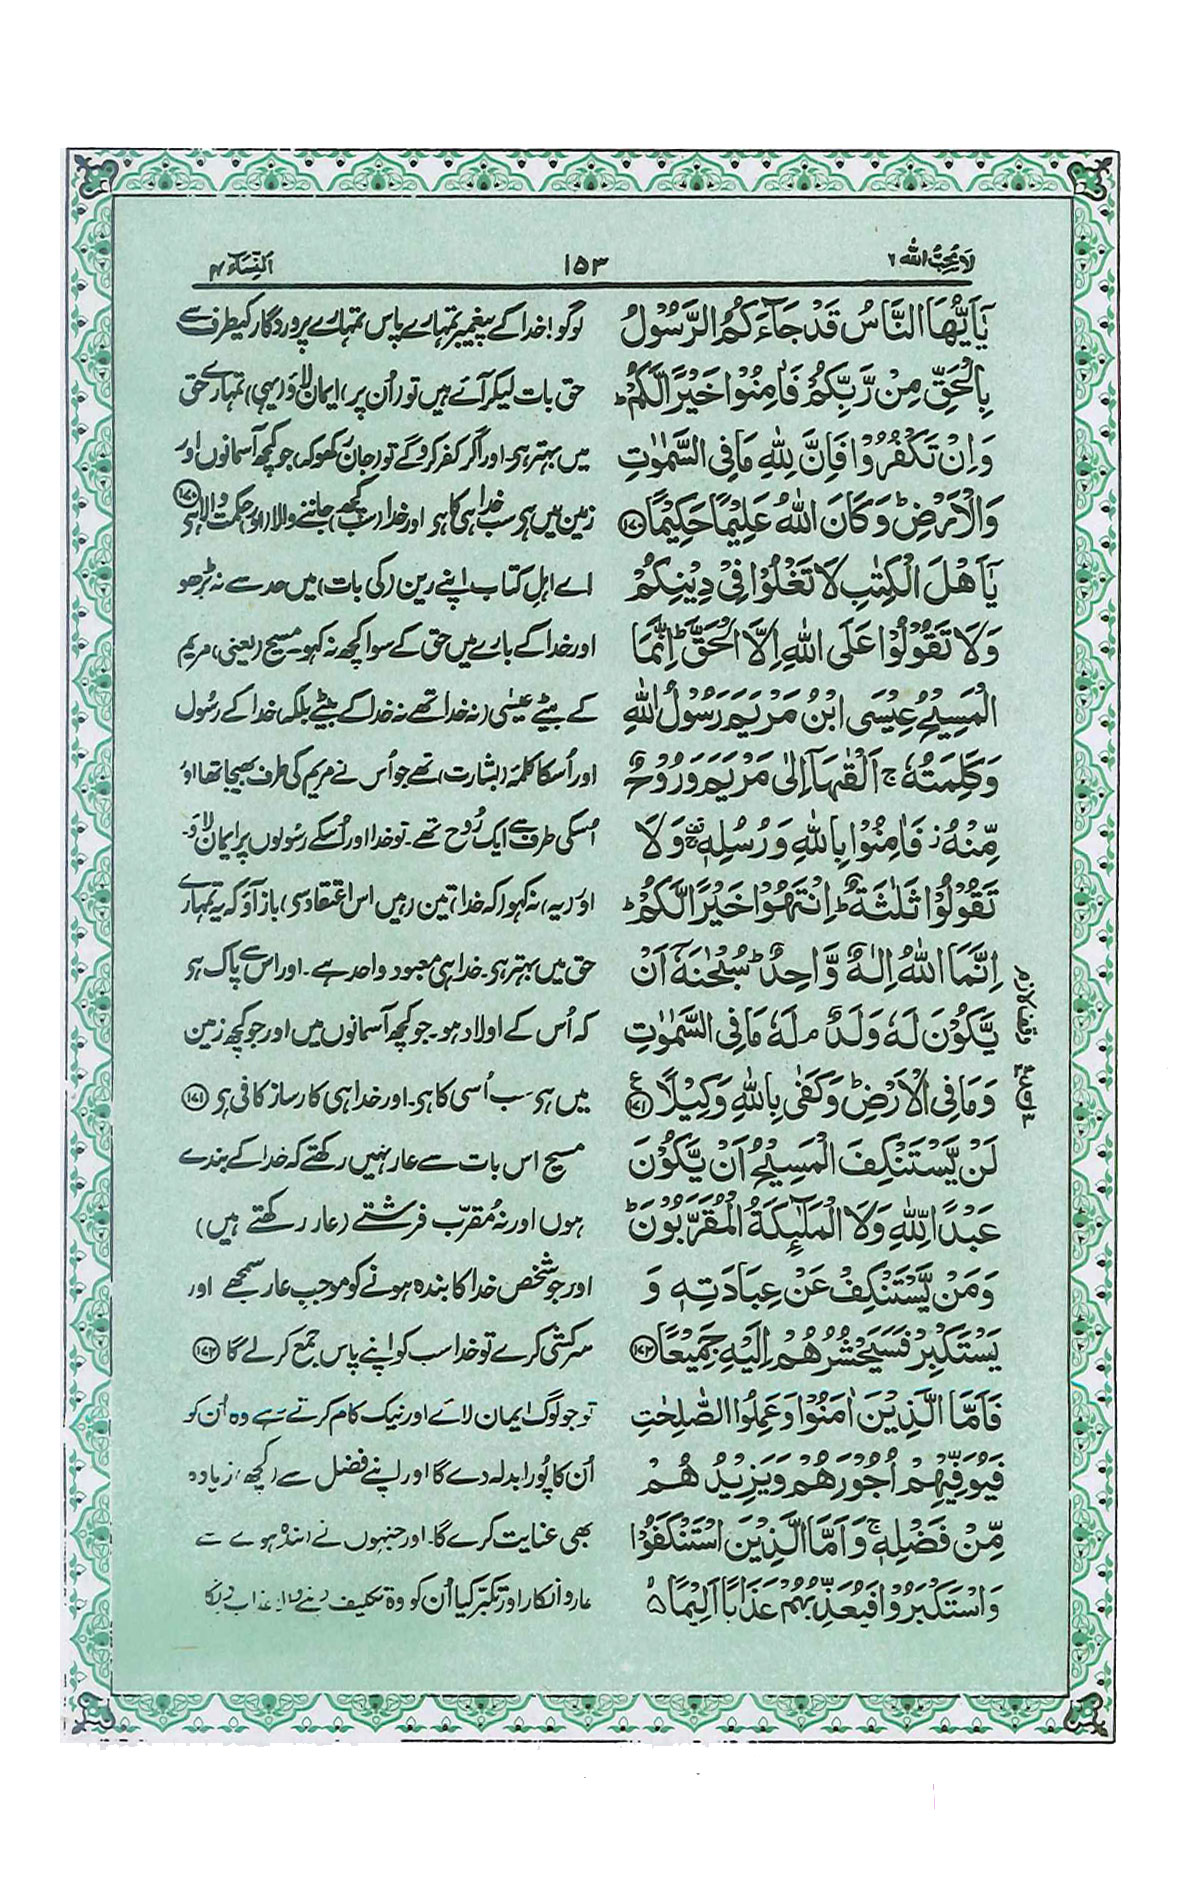 لَا يُحِبُّ اللهُ ٦
١٥٣
اَلنِّسَآء ٤
يٰٓاَيُّهَا النَّاسُ قَدْ جَآءَكُمُ الرَّسُوْلُ
بِالْحَقِّ مِنْ رَّبِّكُمْ فَاٰمِنُوْا خَيْرًا لَّكُمْ ؕ
وَاِنْ تَكْفُرُوْا فَاِنَّ لِلّٰهِ مَا فِى السَّمٰوٰتِ
وَالْاَرْضِ ؕ وَكَانَ اللّٰهُ عَلِيْمًا حَكِيْمًا ۝١٧٠
يٰٓاَهْلَ الْكِتٰبِ لَا تَغْلُوْا فِىْ دِيْنِكُمْ
وَلَا تَقُوْلُوْا عَلَى اللّٰهِ اِلَّا الْحَقَّ ؕ اِنَّمَا
الْمَسِيْحُ عِيْسَى ابْنُ مَرْيَمَ رَسُوْلُ اللّٰهِ
وَكَلِمَتُهٗ ۚ اَلْقٰىهَآ اِلٰى مَرْيَمَ وَرُوْحٌ
مِّنْهُ ۫ فَاٰمِنُوْا بِاللّٰهِ وَرُسُلِهٖ ۚ وَلَا
تَقُوْلُوْا ثَلٰثَةٌ ؕ اِنْتَهُوْا خَيْرًا لَّكُمْ ؕ
اِنَّمَا اللّٰهُ اِلٰهٌ وَّاحِدٌ ؕ سُبْحٰنَهٗٓ اَنْ
يَّكُوْنَ لَهٗ وَلَدٌ ۘ لَهٗ مَا فِى السَّمٰوٰتِ
وَمَا فِى الْاَرْضِ ؕ وَكَفٰى بِاللّٰهِ وَكِيْلًا ۝١٧١
لَنْ يَّسْتَنْكِفَ الْمَسِيْحُ اَنْ يَّكُوْنَ
عَبْدًا لِّلّٰهِ وَلَا الْمَلٰٓئِكَةُ الْمُقَرَّبُوْنَ ؕ
وَمَنْ يَّسْتَنْكِفْ عَنْ عِبَادَتِهٖ وَ
يَسْتَكْبِرْ فَسَيَحْشُرُهُمْ اِلَيْهِ جَمِيْعًا ۝١٧٢
فَاَمَّا الَّذِيْنَ اٰمَنُوْا وَعَمِلُوا الصّٰلِحٰتِ
فَيُوَفِّيْهِمْ اُجُوْرَهُمْ وَيَزِيْدُهُمْ
مِّنْ فَضْلِهٖ ۚ وَاَمَّا الَّذِيْنَ اسْتَنْكَفُوْا
وَاسْتَكْبَرُوْا فَيُعَذِّبُهُمْ عَذَابًا اَلِيْمًا ۙ
وقف لازم
لوگو! خدا کے پیغمبر تمہارے پاس تمہارے پروردگار کیطرف سے
حق بات لیکر آئے ہیں تو (اُن پر) ایمان لاؤ (یہی) تمہارے حق
میں بہتر ہو۔ اور اگر کفر کرو گے تو (جان رکھو کہ) جو کچھ آسمانوں اور
زمین میں ہو سب خدا ہی کا ہو اور خدا (سب کچھ) جاننے والا (اور) حکمت والا ہو ۝١٧٠
اے اہلِ کتاب اپنے دین (کی بات) میں حد سے نہ بڑھو
اور خدا کے بارے میں حق کے سوا کچھ نہ کہو۔ مسیح (یعنی) مریم
کے بیٹے عیسیٰ (نہ خدا تھے نہ خدا کے بیٹے بلکہ) خدا کے رسُول
اور اُسکا کلمہ (بشارت) تھے جو اُس نے مریم کی طرف بھیجا تھا اور
اُسکی طرف سے ایک رُوح تھے۔ تو خدا اور اُسکے رسُولوں پر ایمان لاؤ۔
اور (یہ) نہ کہو (کہ خدا) تین (ہیں اس اعتقاد سے) باز آؤ کہ یہ تمہارے
حق میں بہتر ہو۔ خدا ہی معبود واحد ہے۔ اور اس سے پاک ہو
کہ اُس کے اولاد ہو۔ جو کچھ آسمانوں میں اور جو کچھ زمین
میں ہو سب اُسی کا ہو۔ اور خدا ہی کارساز کافی ہو ۝١٧١
مسیح اس بات سے عار نہیں رکھتے کہ خدا کے بندے
ہوں اور نہ مُقرّب فرشتے (عار رکھتے ہیں)
اور جو شخص خدا کا بندہ ہونے کو موجبِ عار سمجھے اور
سرکشی کرے تو خدا سب کو اپنے پاس جمع کر لے گا ۝١٧٢
تو جو لوگ ایمان لائے اور نیک کام کرتے رہے وہ اُن کو
اُن کا پُورا بدلہ دے گا اور اپنے فضل سے (کچھ) زیادہ
بھی عنایت کرے گا۔ اور جنہوں نے (بندہ ہونے سے
عار و انکار اور تکبّر کیا اُن کو وہ تکلیف دینے والا عذاب دیگا